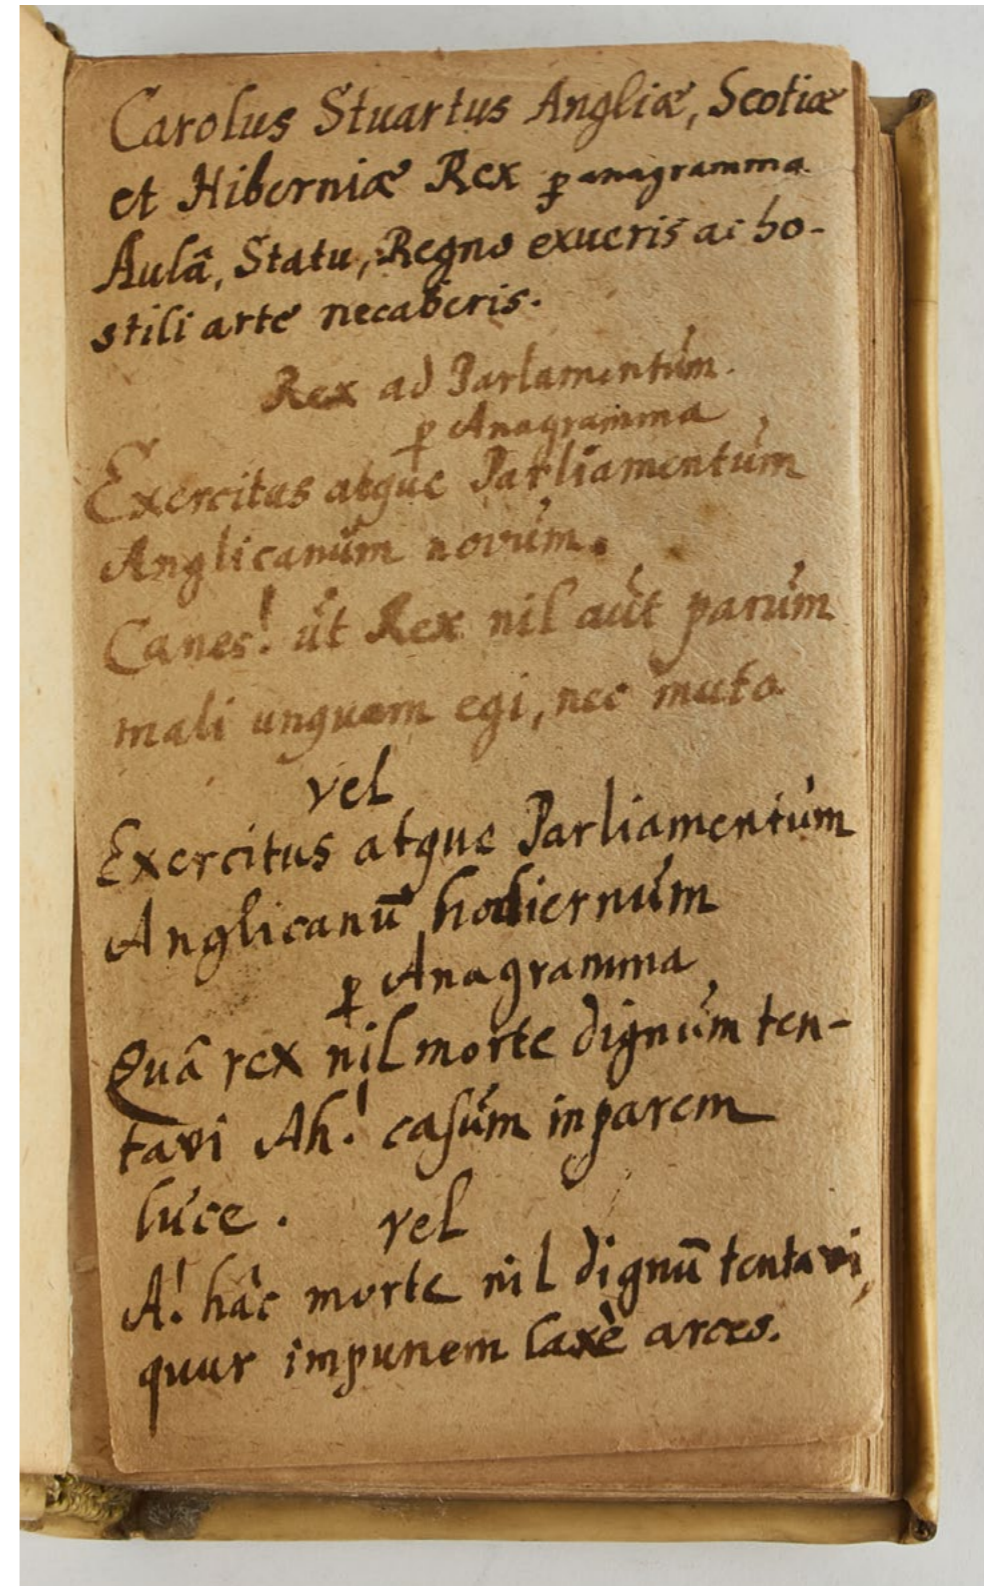 Carolus Stuartus Angliæ, Scotiæ
et Hiberniæ Rex ꝑ anagramma.
Aulâ, Statu, Regno exueris ac ho-
stili arte necaberis.
Rex ad Parlamentúm.
ꝑ Anagramma
Exercitus atque Parliamentúm
Anglicanúm novúm.
Canes! út Rex nil aút parúm
mali unquam egi, nec muto
vel
Exercitus atque Parliamentúm
Anglicanū hodiernúm
ꝑ Anagramma
Quâ rex nil morte dignúm ten-
tavi Ah! casúm inparem
lúce. vel
A! hâc morte nil dignū tentavi,
quur impunem laxè arces.